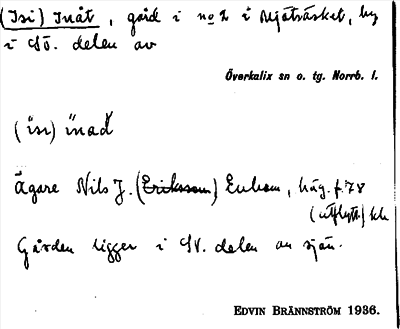 (Isi) Inåt, gård i no 2 i Mjöträsket, by
i SV. delen av
Överkalix sn o. tg. Norrb. l.
(isi) inad
Ägare Nils J. (Eriksson) Enbom, häg. f. 78
(utflytt.)
Gården ligger i SV. delen av sjön.
EDVIN BRÄNNSTRÖM 1936.